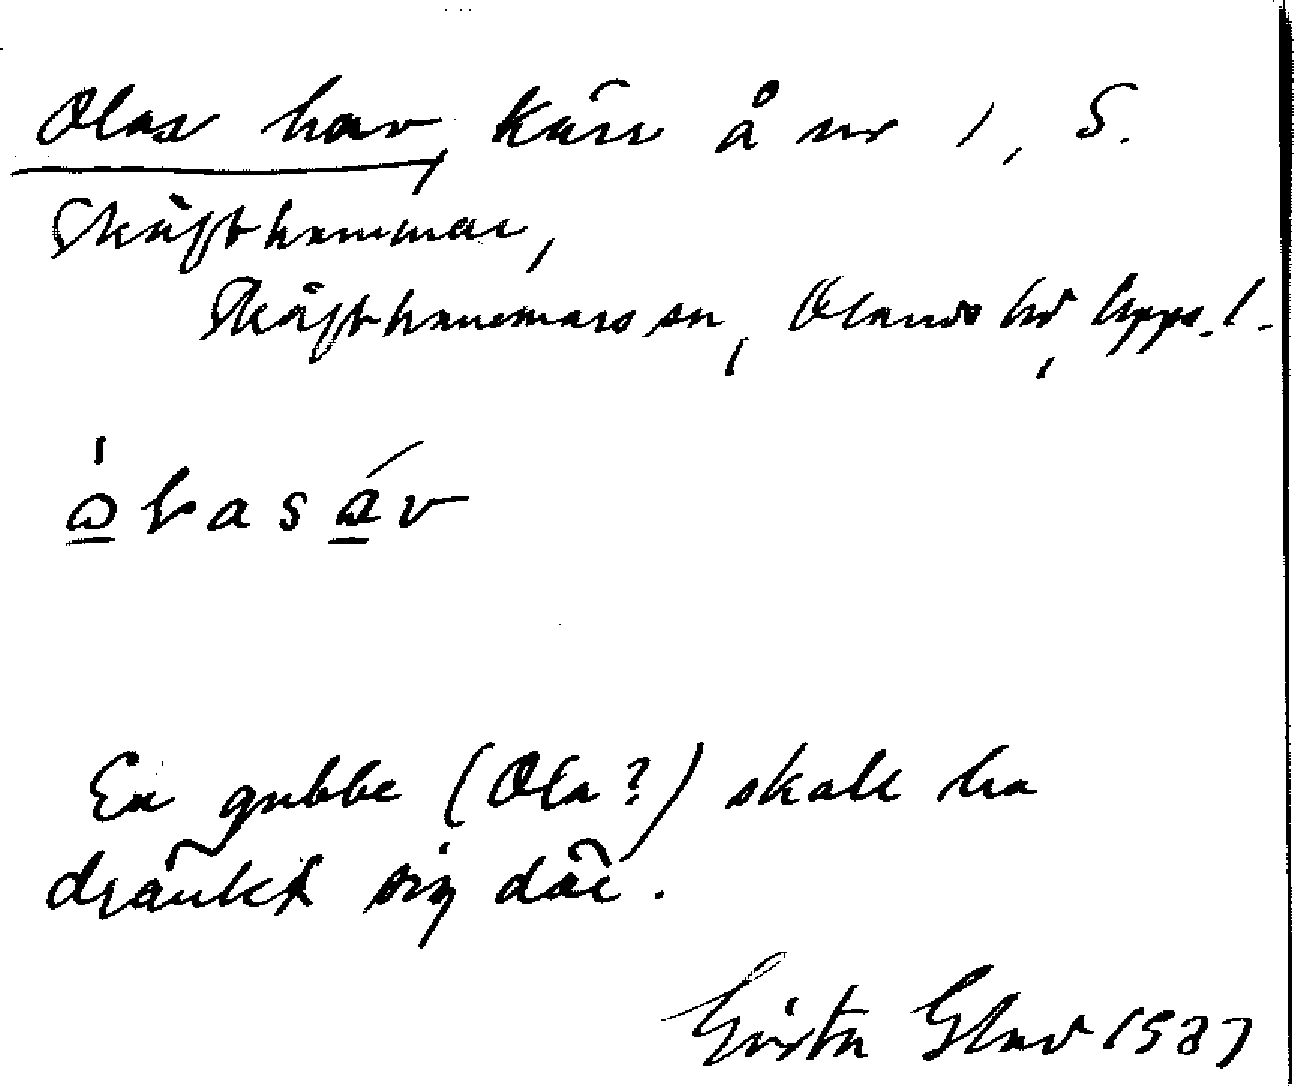 Olas hav, kärr å nr 1, S.
Skäfthammar,
Skäfthammars sn, Olands hd, Upps. l.
En gubbe (Ola?) skall ha
dränkt sig där.
Gösta Glav 1937